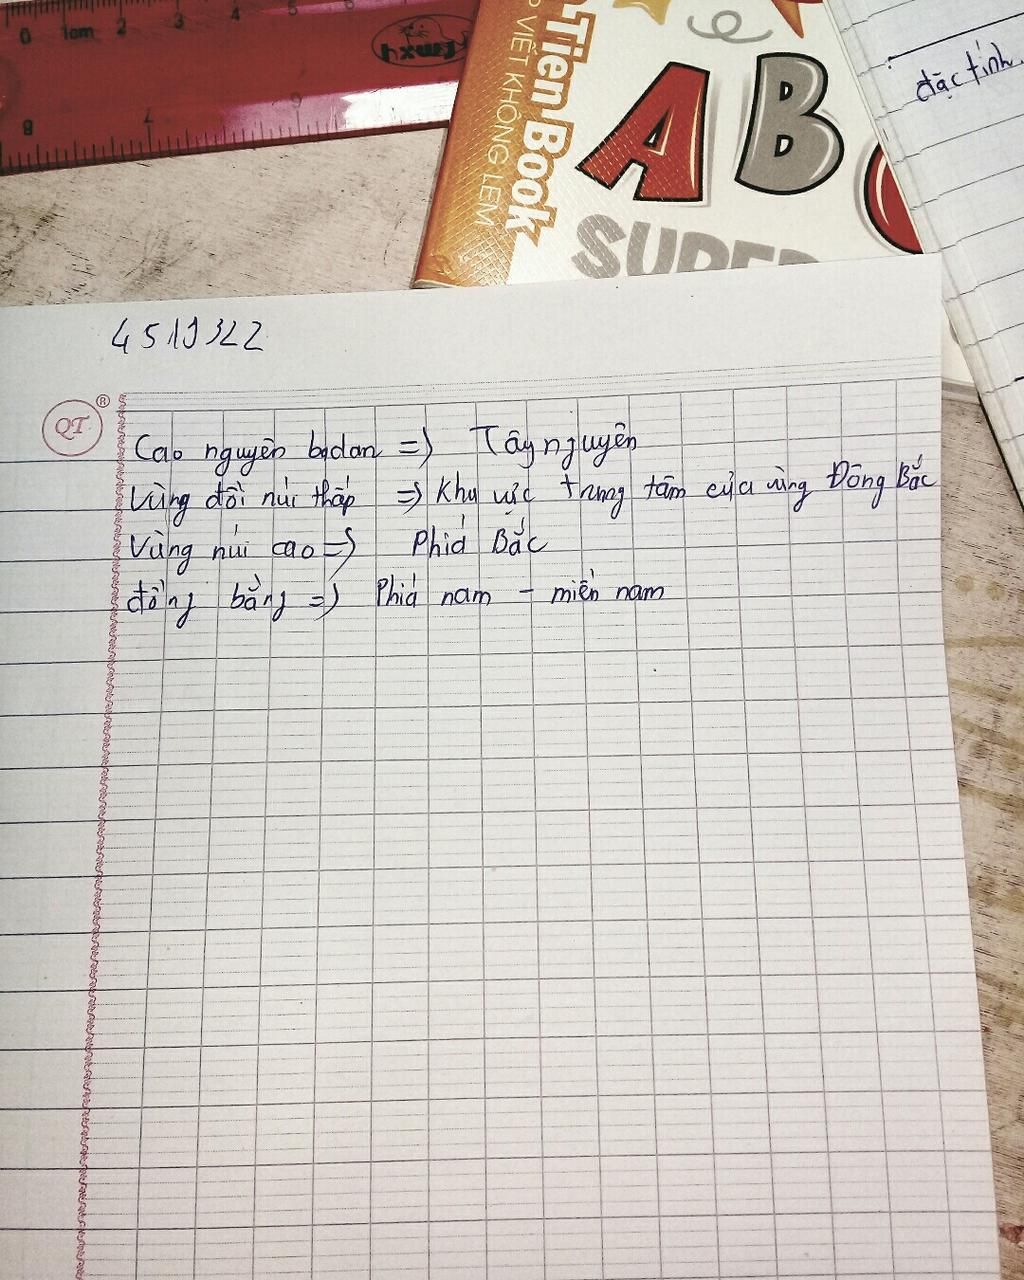 0 1cm 2 3 4 5 6
8 7 6
Tiến Book
VIẾT KHÔNG LEM
AB
SUPER
đặc tính
4519322
QT
®
Cao nguyên badan => Tây nguyên
Vùng đồi núi thấp => Khu vực trung tâm của vùng Đông Bắc
Vùng núi cao => Phiá Bắc
đồng bằng => Phiá nam - miền nam